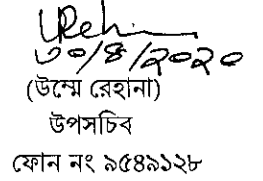 ৩০/৪/২০২০
(উম্মে রেহানা)
উপসচিব
ফোন নং ৯৫৪৯১২৮